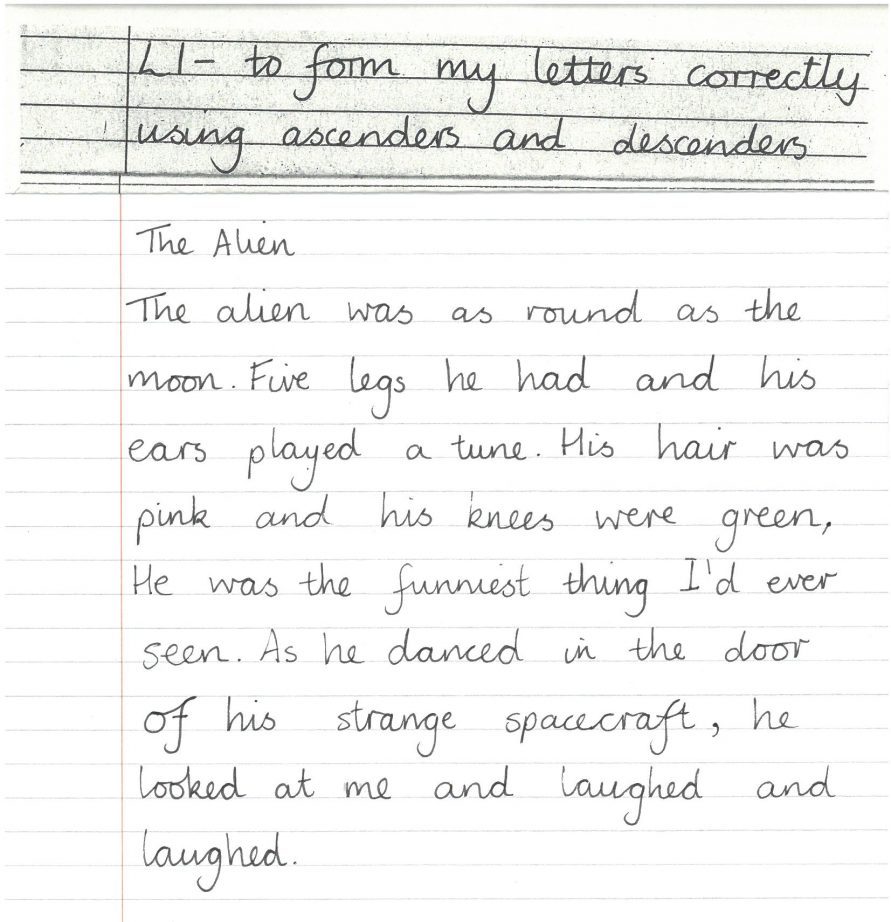 LI- to form my letters correctly
using ascenders and descenders
The Alien
The alien was as round as the
moon. Five legs he had and his
ears played a tune. His hair was
pink and his knees were green,
He was the funniest thing I'd ever
seen. As he danced in the door
of his strange spacecraft, he
looked at me and laughed and
laughed.